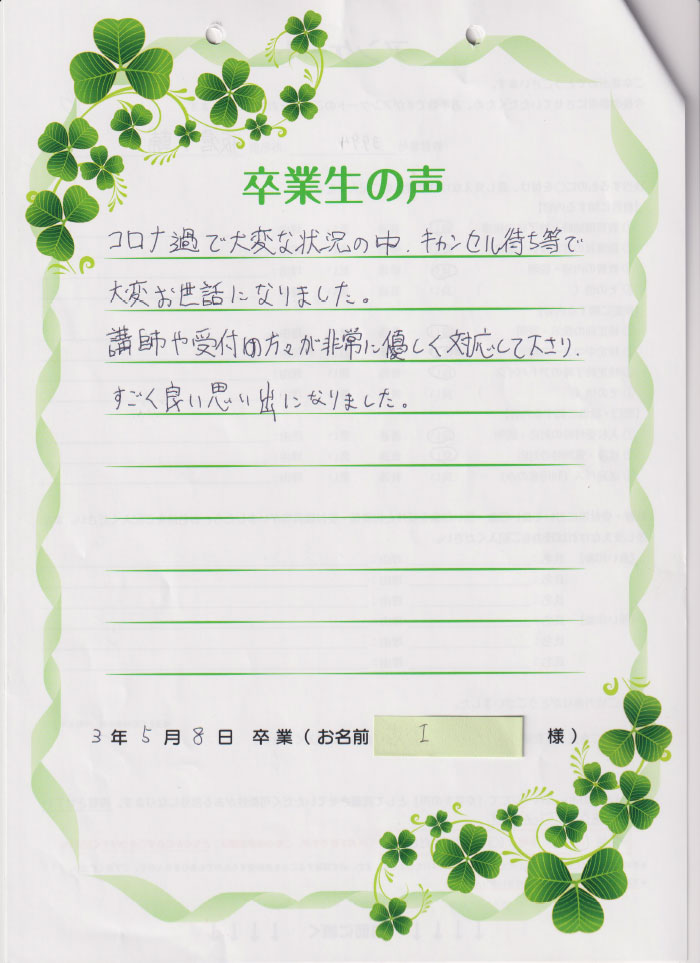 卒業生の声
コロナ過で大変な状況の中、キャンセル待ち等で
大変お世話になりました。
講師や受付の方々が非常に優しく対応して下さり、
すごく良い思い出になりました。
3年5月8日 卒業(お名前 I 様)